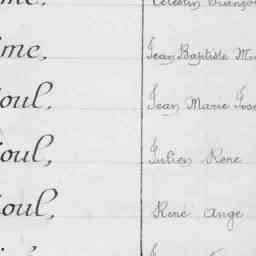 me, Célestin
me, Jean Baptiste
oul, Jean Marie
oul, Julien René
oul, René Ange